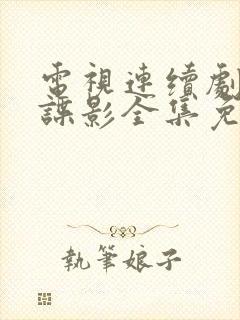 電視連續劇
諜影全集免
執筆娘子